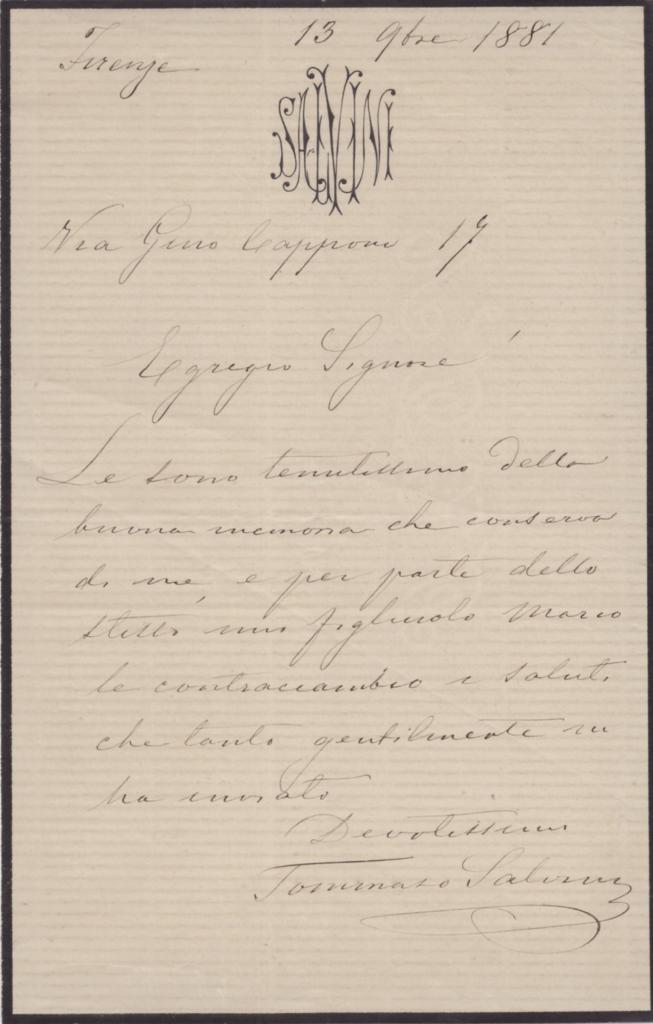 Firenze 13 9bre 1881
SALVINI
Via Gino Capponi 17
Egregio Signore
Le sono tenutissimo della
buona memoria che conserva
di me, e per parte dello
stesso mio figliuolo Mario
le contraccambio i saluti
che tanto gentilmente mi
ha inviato
Devotissimo
Tommaso Salvini